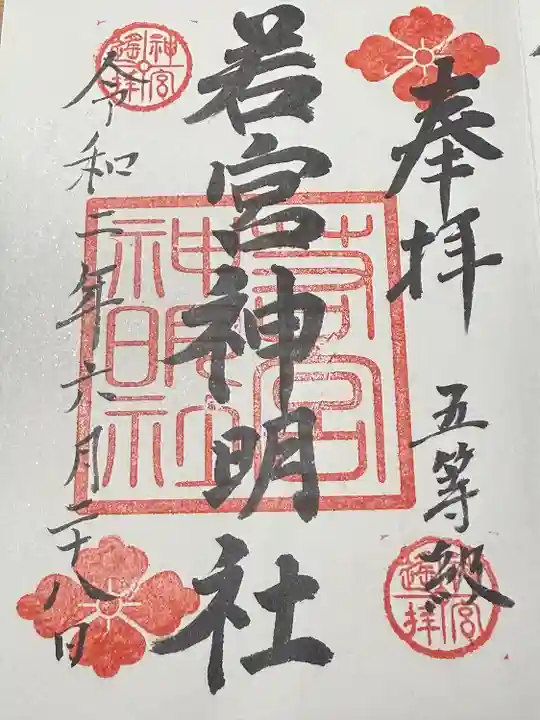 奉拝
五等級
若宮神明社
令和二年六月二十八日
神宮
遙拝
若宮
神明社
神宮
遙拝